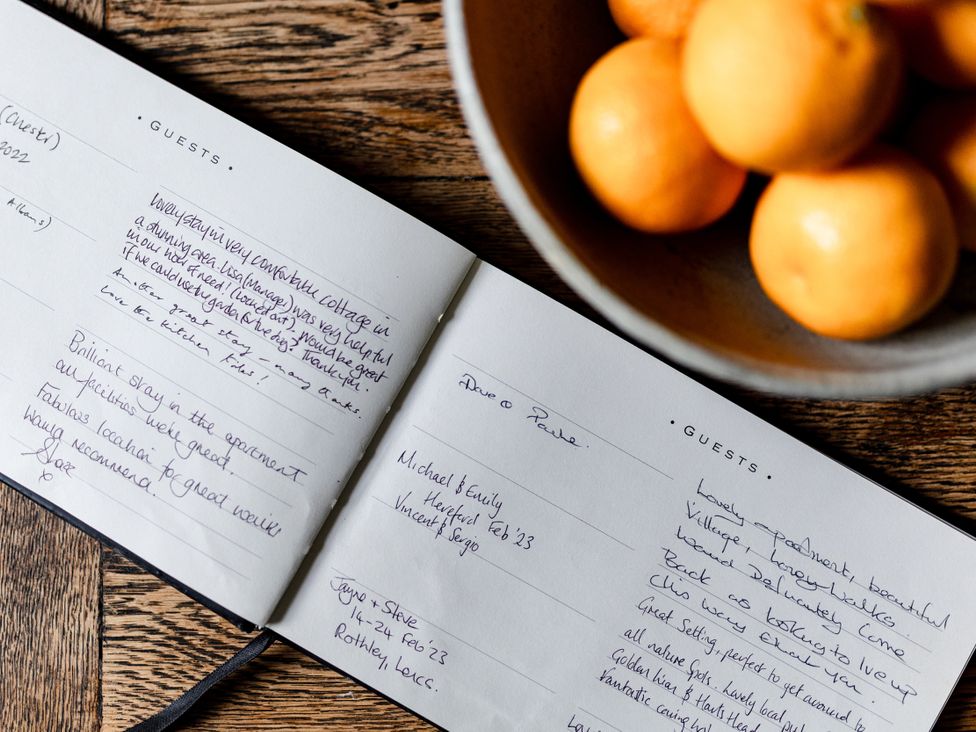 (Chester)
2022
Albans)
• GUESTS •
Lovely stay in very comfortable cottage in
a stunning area. Lisa (Manager) was very helpful
in our hour of need! (Locked out), Would be great
if we could use the garden for the dog? Thankyou.
Another great stay - many thanks.
Love the kitchen
Brilliant stay in the apartment
all facilities were great.
Fabulous location for great walks
Would recommend.
x
Dave &
Michael & Emily
Hereford Feb '23
Vincent & Sergio
Jayne + Steve
14-24 Feb '23
Rothley, Leics.
• GUESTS •
Lovely apartment, beautiful
Village, lovely walks.
Would Definately Come
Back as looking to live up
this way
Great Setting, perfect to get around to
all nature spots. Lovely local pubs
Golden Lion & Harts Head
Fantastic